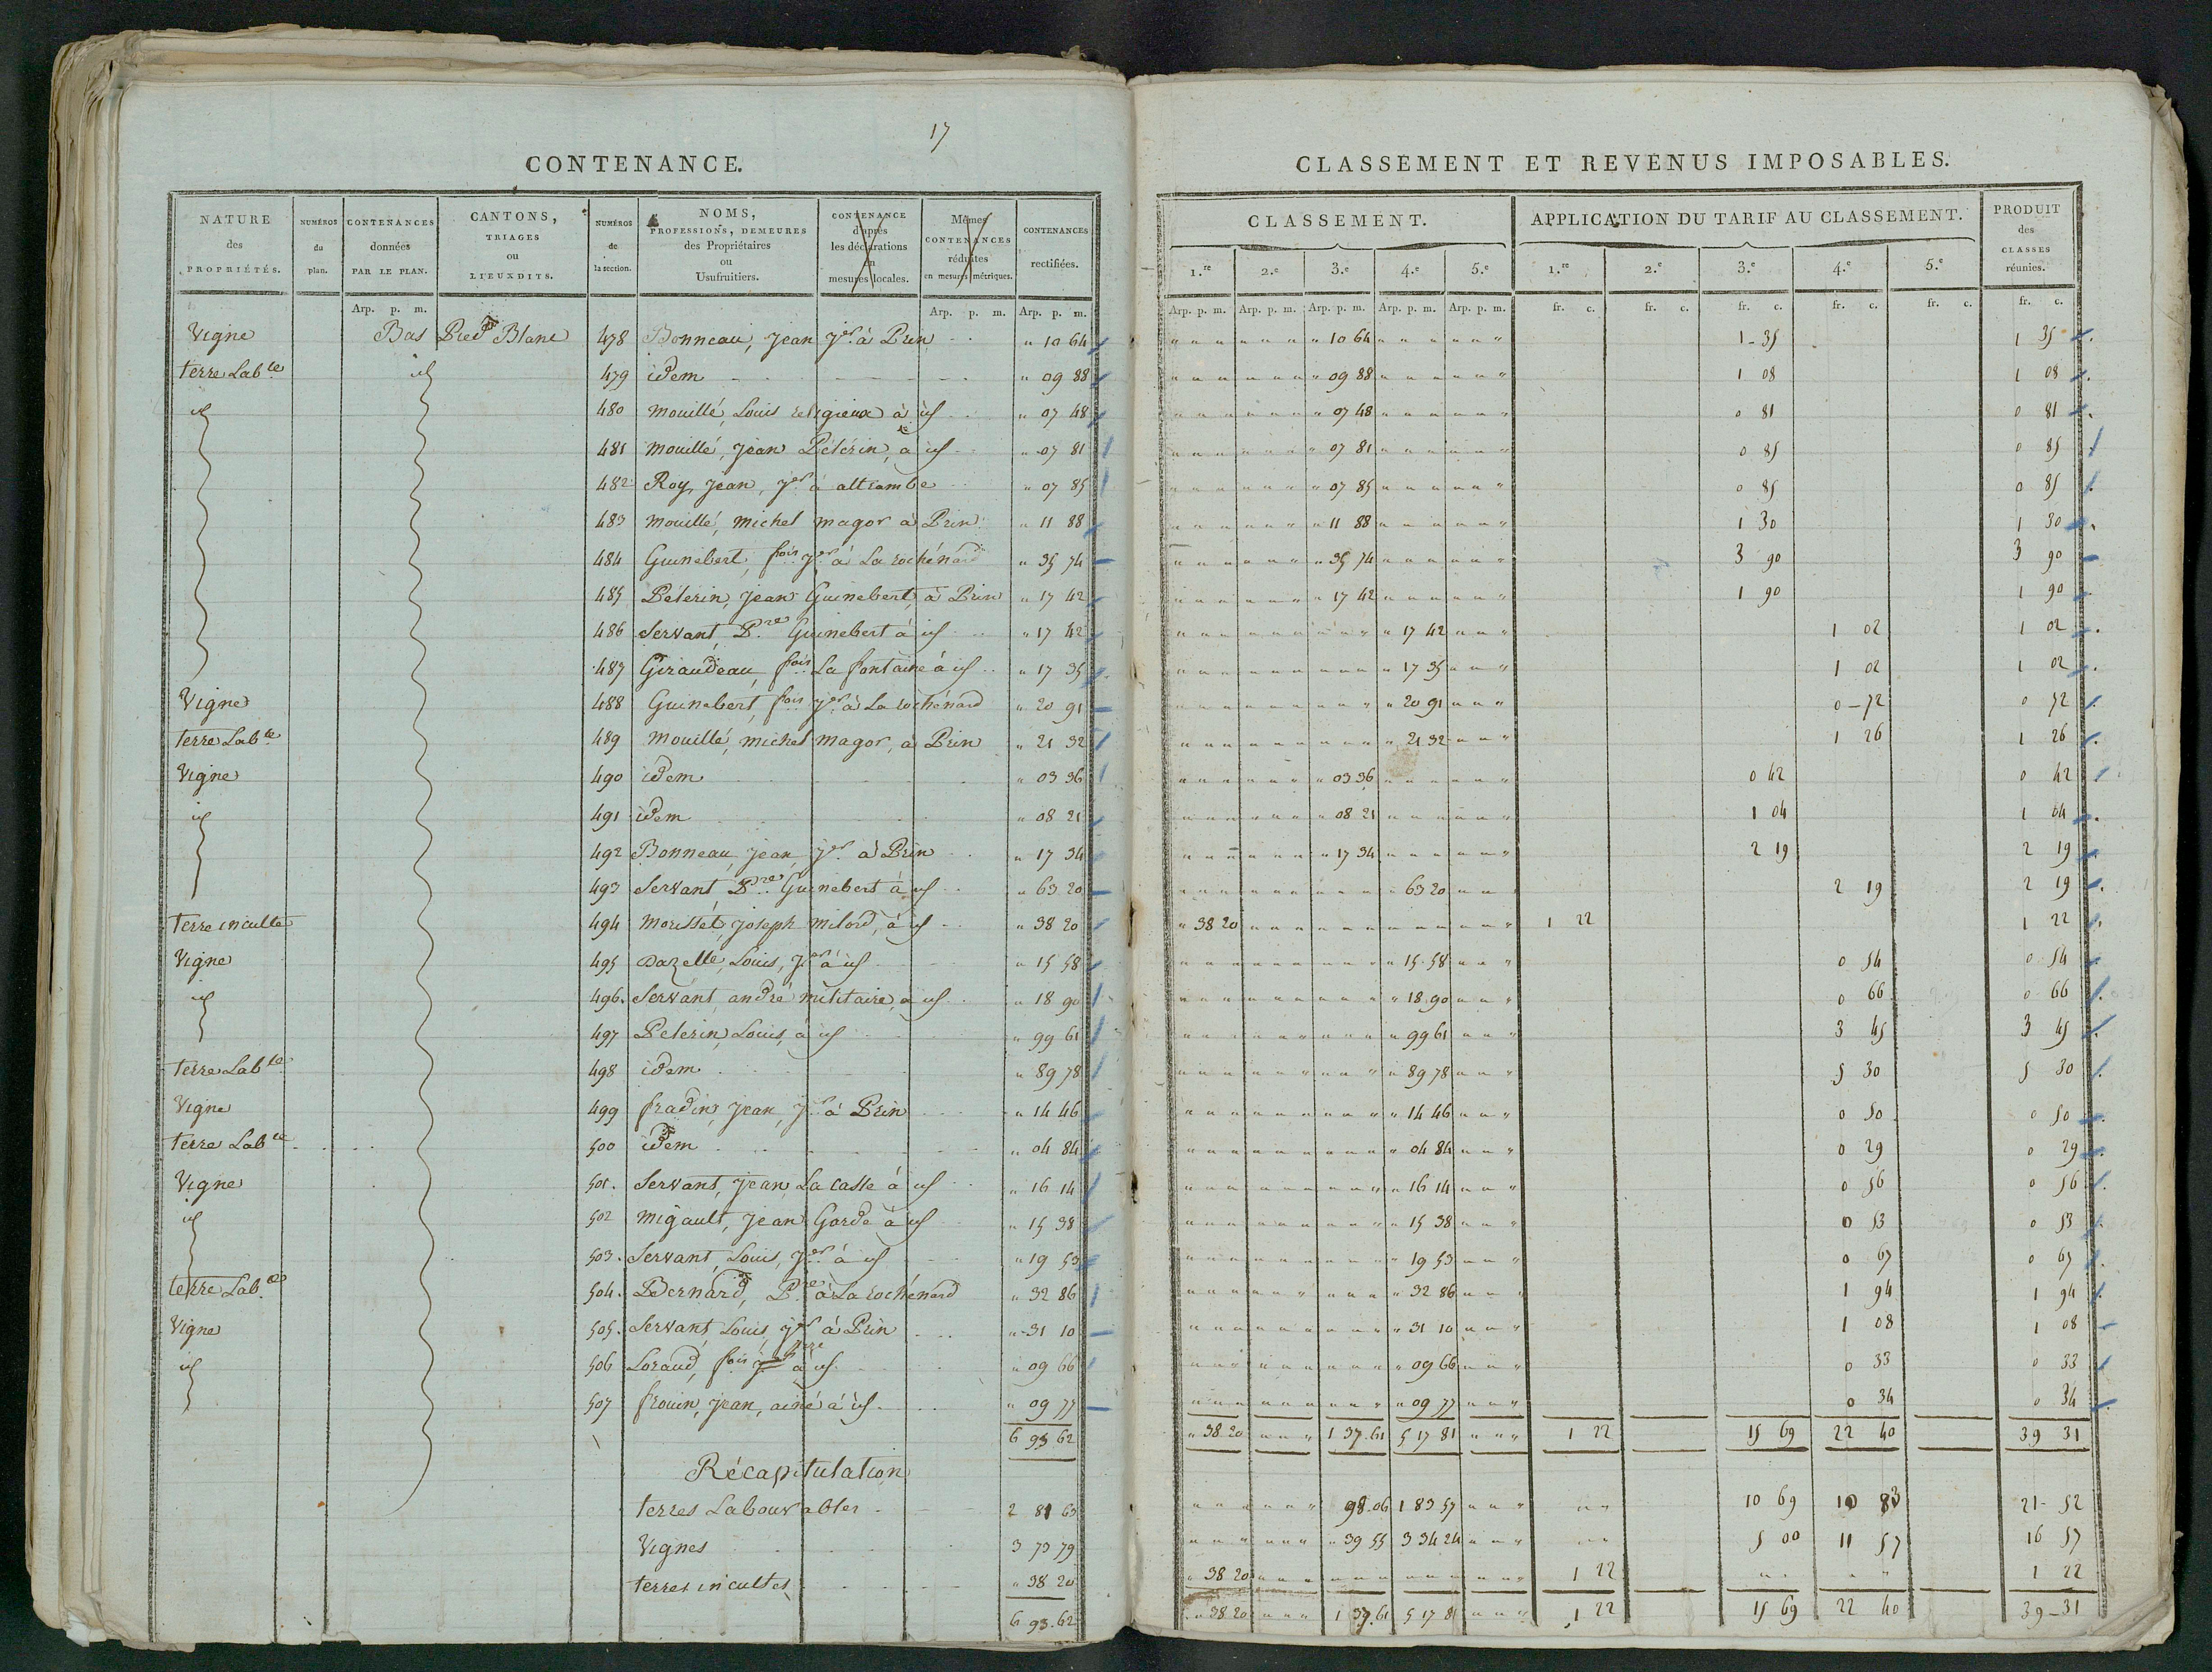 17
CONTENANCE.
NATURE des PROPRIÉTÉS. | NUMÉROS du plan. | CONTENANCES données PAR LE PLAN. | CANTONS, TRIAGES ou LIEUXDITS. | NUMÉROS de la section. | NOMS, PROFESSIONS, DEMEURES des Propriétaires ou Usufruitiers. | CONTENANCE d'après les déclarations en mesures locales. | Mêmes CONTENANCES réduites en mesures métriques. | CONTENANCES rectifiées.
Arp. p. m. | Arp. p. m. | Arp. p. m.
Vigne Bas Pied Blanc 478 Bonneau, Jean Jer à Prin " 10 64
terre Lable id 479 idem " 09 88
id 480 Mouillé, Louis religieux à id " 07 48
481 Mouillé, Jean Pélérin, à id " 07 81
482 Roy, Jean, Jer à allrambe " 07 85
483 Mouillé, Michel magor à Prin " 11 88
484 Guinebert, fois Jer à La rochénard " 35 74
485 Pélérin, Jean Guinebert, à Prin " 17 42
486 Servant, Pre Guinebert à id " 17 42
487 Giraudeau, fois La fontaine à id " 17 35
Vigne 488 Guinebert, fois Jer à La rochénard " 20 91
terre Labe 489 Mouillé, Michel magor, à Prin " 21 32
Vigne 490 idem " 03 36
id 491 idem " 08 21
492 Bonneau, Jean, Jer à Prin " 17 34
493 Servant, Pre Guinebert à id " 63 20
Terre inculte 494 Morisset, Joseph milord, à id " 38 20
Vigne 495 Dazelle, Louis, Jer à id " 15 58
id 496. Servant, andré militaire, à id " 18 90
497 Pelerin, Louis, à id " 99 61
Terre Lable 498 idem " 89 78
Vigne 499 fradin, Jean, Jer à Prin " 14 46
terre Lable 500 idem " 04 84
Vigne 501. Servant, Jean, La casse à id " 16 14
id 502 Migault, Jean Garde à id " 15 38
503. Servant, Louis, Jer à id " 19 53
terre Labe 504. Bernard, Pre à La rochénard " 32 86
Vigne 505. Servant, Louis, Jer à Prin " 31 10
id 506 Loraud, fois à id " 09 66
507 frouin, Jean, ainé à id " 09 77
6 93 62
Récapitulation
terres Labourables 2 81 63
Vignes 3 73 79
terres incultes " 38 20
6 93. 62
CLASSEMENT ET REVENUS IMPOSABLES.
CLASSEMENT. | APPLICATION DU TARIF AU CLASSEMENT. | PRODUIT des CLASSES réunies.
1.re | 2.e | 3.e | 4.e | 5.e | 1.re | 2.e | 3.e | 4.e | 5.e
Arp. p. m. | Arp. p. m. | Arp. p. m. | Arp. p. m. | Arp. p. m. | fr. c. | fr. c. | fr. c. | fr. c. | fr. c. | fr. c.
" 10 64 1-35 1 35
" 09 88 1 08 1 08
" 07 48 0 81 0 81
" 07 81 0 85 0 85
" 07 85 0 85 0 85
" 11 88 1 30 1 30
" 35 74 3 90 3 90
" 17 42 1 90 1 90
" 17 42 1 02 1 02
" 17 35 1 02 1 02
" 20 91 0-72 0 72
" 21 32 1 26 1 26
" 03 36 0 42 0 42
" 08 21 1 04 1 04
" 17 34 2 19 2 19
" 63 20 2 19 2 19
" 38 20 1 22 1 22
" 15.58 0 54 0 54
" 18.90 0 66 0 66
" 99 61 3 45 3 45
" 89 78 5 30 5 30
" 14 46 0 50 0 50
" 04 84 0 29 0 29
" 16 14 0 56 0 56
" 15 38 0 53 0 53
" 19 53 0 67 0 67
" 32 86 1 94 1 94
" 31 10 1 08 1 08
" 09 66 0 33 0 33
" 09 77 0 34 0 34
" 38 20 1 37.61 5 17 81 1 22 15 69 22 40 39 31
98.06 1 83 57 10 69 10 83 21-52
" 39 55 3 34 24 5 00 11 57 16 57
" 38 20 1 22 1 22
" 38 20 1 37.61 5 17 81 1 22 15 69 22 40 39-31